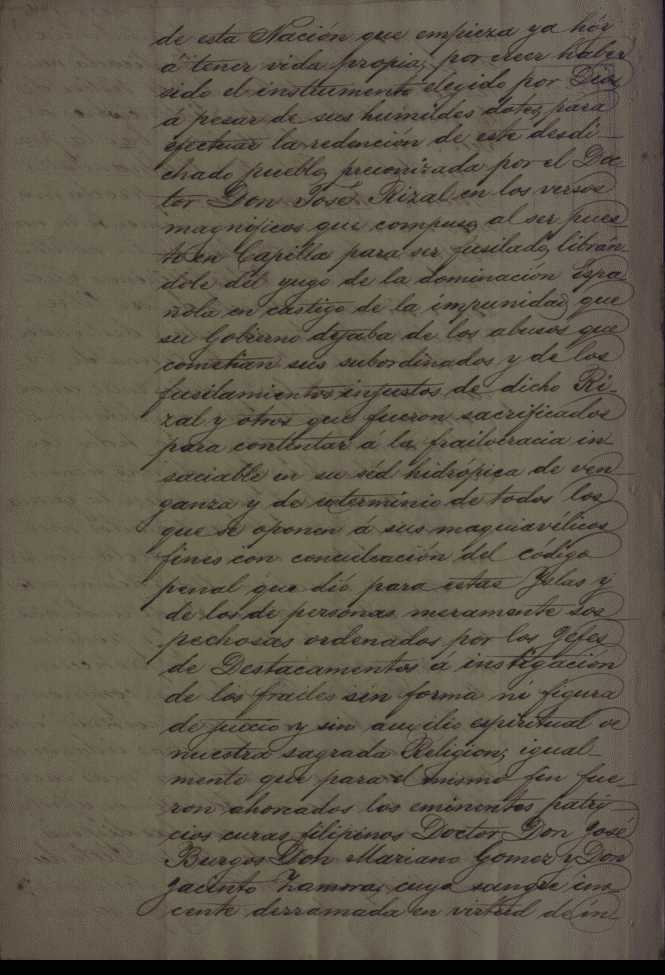 de esta Nación que empieza ya hóy
á tener vida propia, por creer haber
sido el instrumento elegido por Dios,
á pesar de sus humildes dotes, para
efectuar la redención de este desdi-
chado pueblo, preconizada por el Doc-
tor Don José Rizal en los versos
magníficos que compuso, al ser pues-
to en Capilla para ser fusilado, librán-
dole del yugo de la dominación Espa-
ñola en castigo de la impunidad que
su Gobierno dejaba de los abusos que
cometian sus subordinados y de los
fusilamientos injustos de dicho Ri-
zal y otros que fueron sacrificados
para contentar a la frailocracia in-
saciable en su séd hidrópica de ven-
ganza y de exterminio de todos los
que se oponen á sus maquiavélicos
fines con conculcación del Código
penal que dió para estas Yslas y
de los de personas meramente sos-
pechosas ordenados por los Gefes
de Destacamentos á instigación
de los frailes sin forma ni figura
de juicio y sin auxilio espiritual de
nuestra sagrada Religion; igual-
mente que para el mismo fin fue-
ron ahorcados los eminentes patri-
cios curas filipinos Doctor Don José
Burgos Don Mariano Gomez y Don
Jacinto Zamora, cuya sangre ino-
cente derramada en virtud de in-